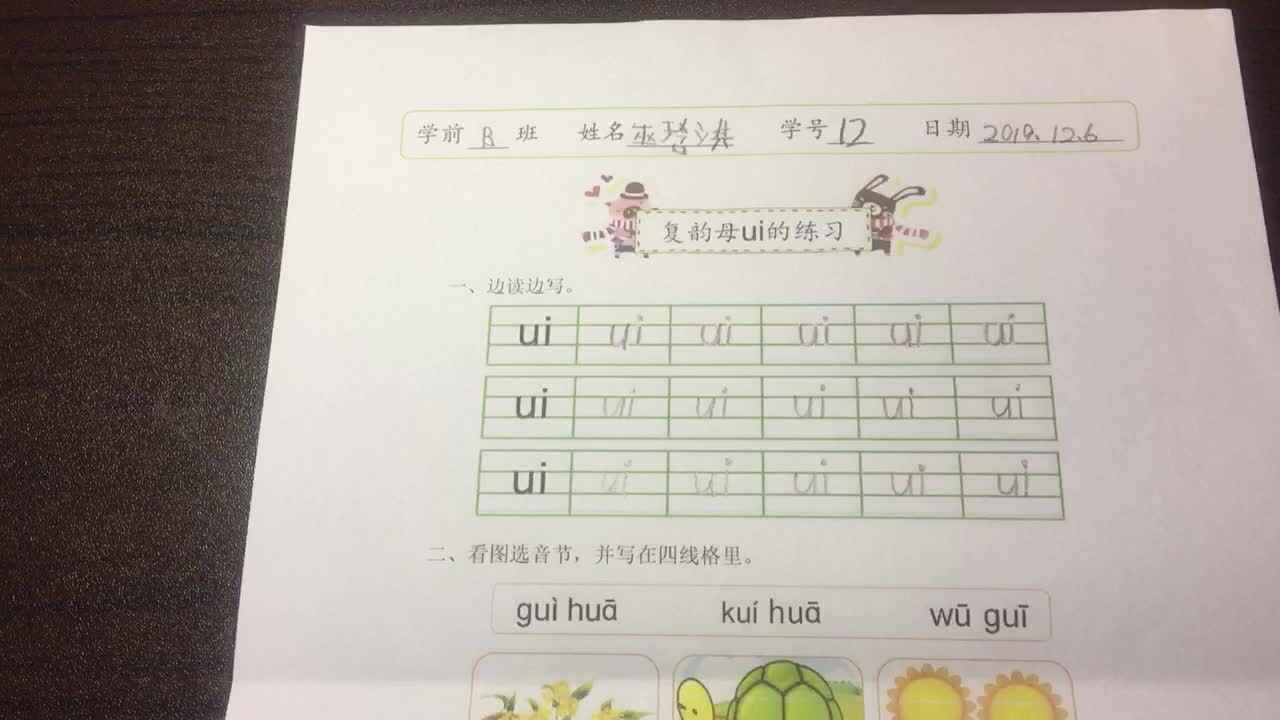 学前 B 班 姓名 学号 12 日期 2019.12.6
复韵母ui的练习
一、边读边写。
ui ui ui ui ui ui
ui ui ui ui ui ui
ui ui ui ui ui ui
二、看图选音节，并写在四线格里。
guì huā kuí huā wū guī